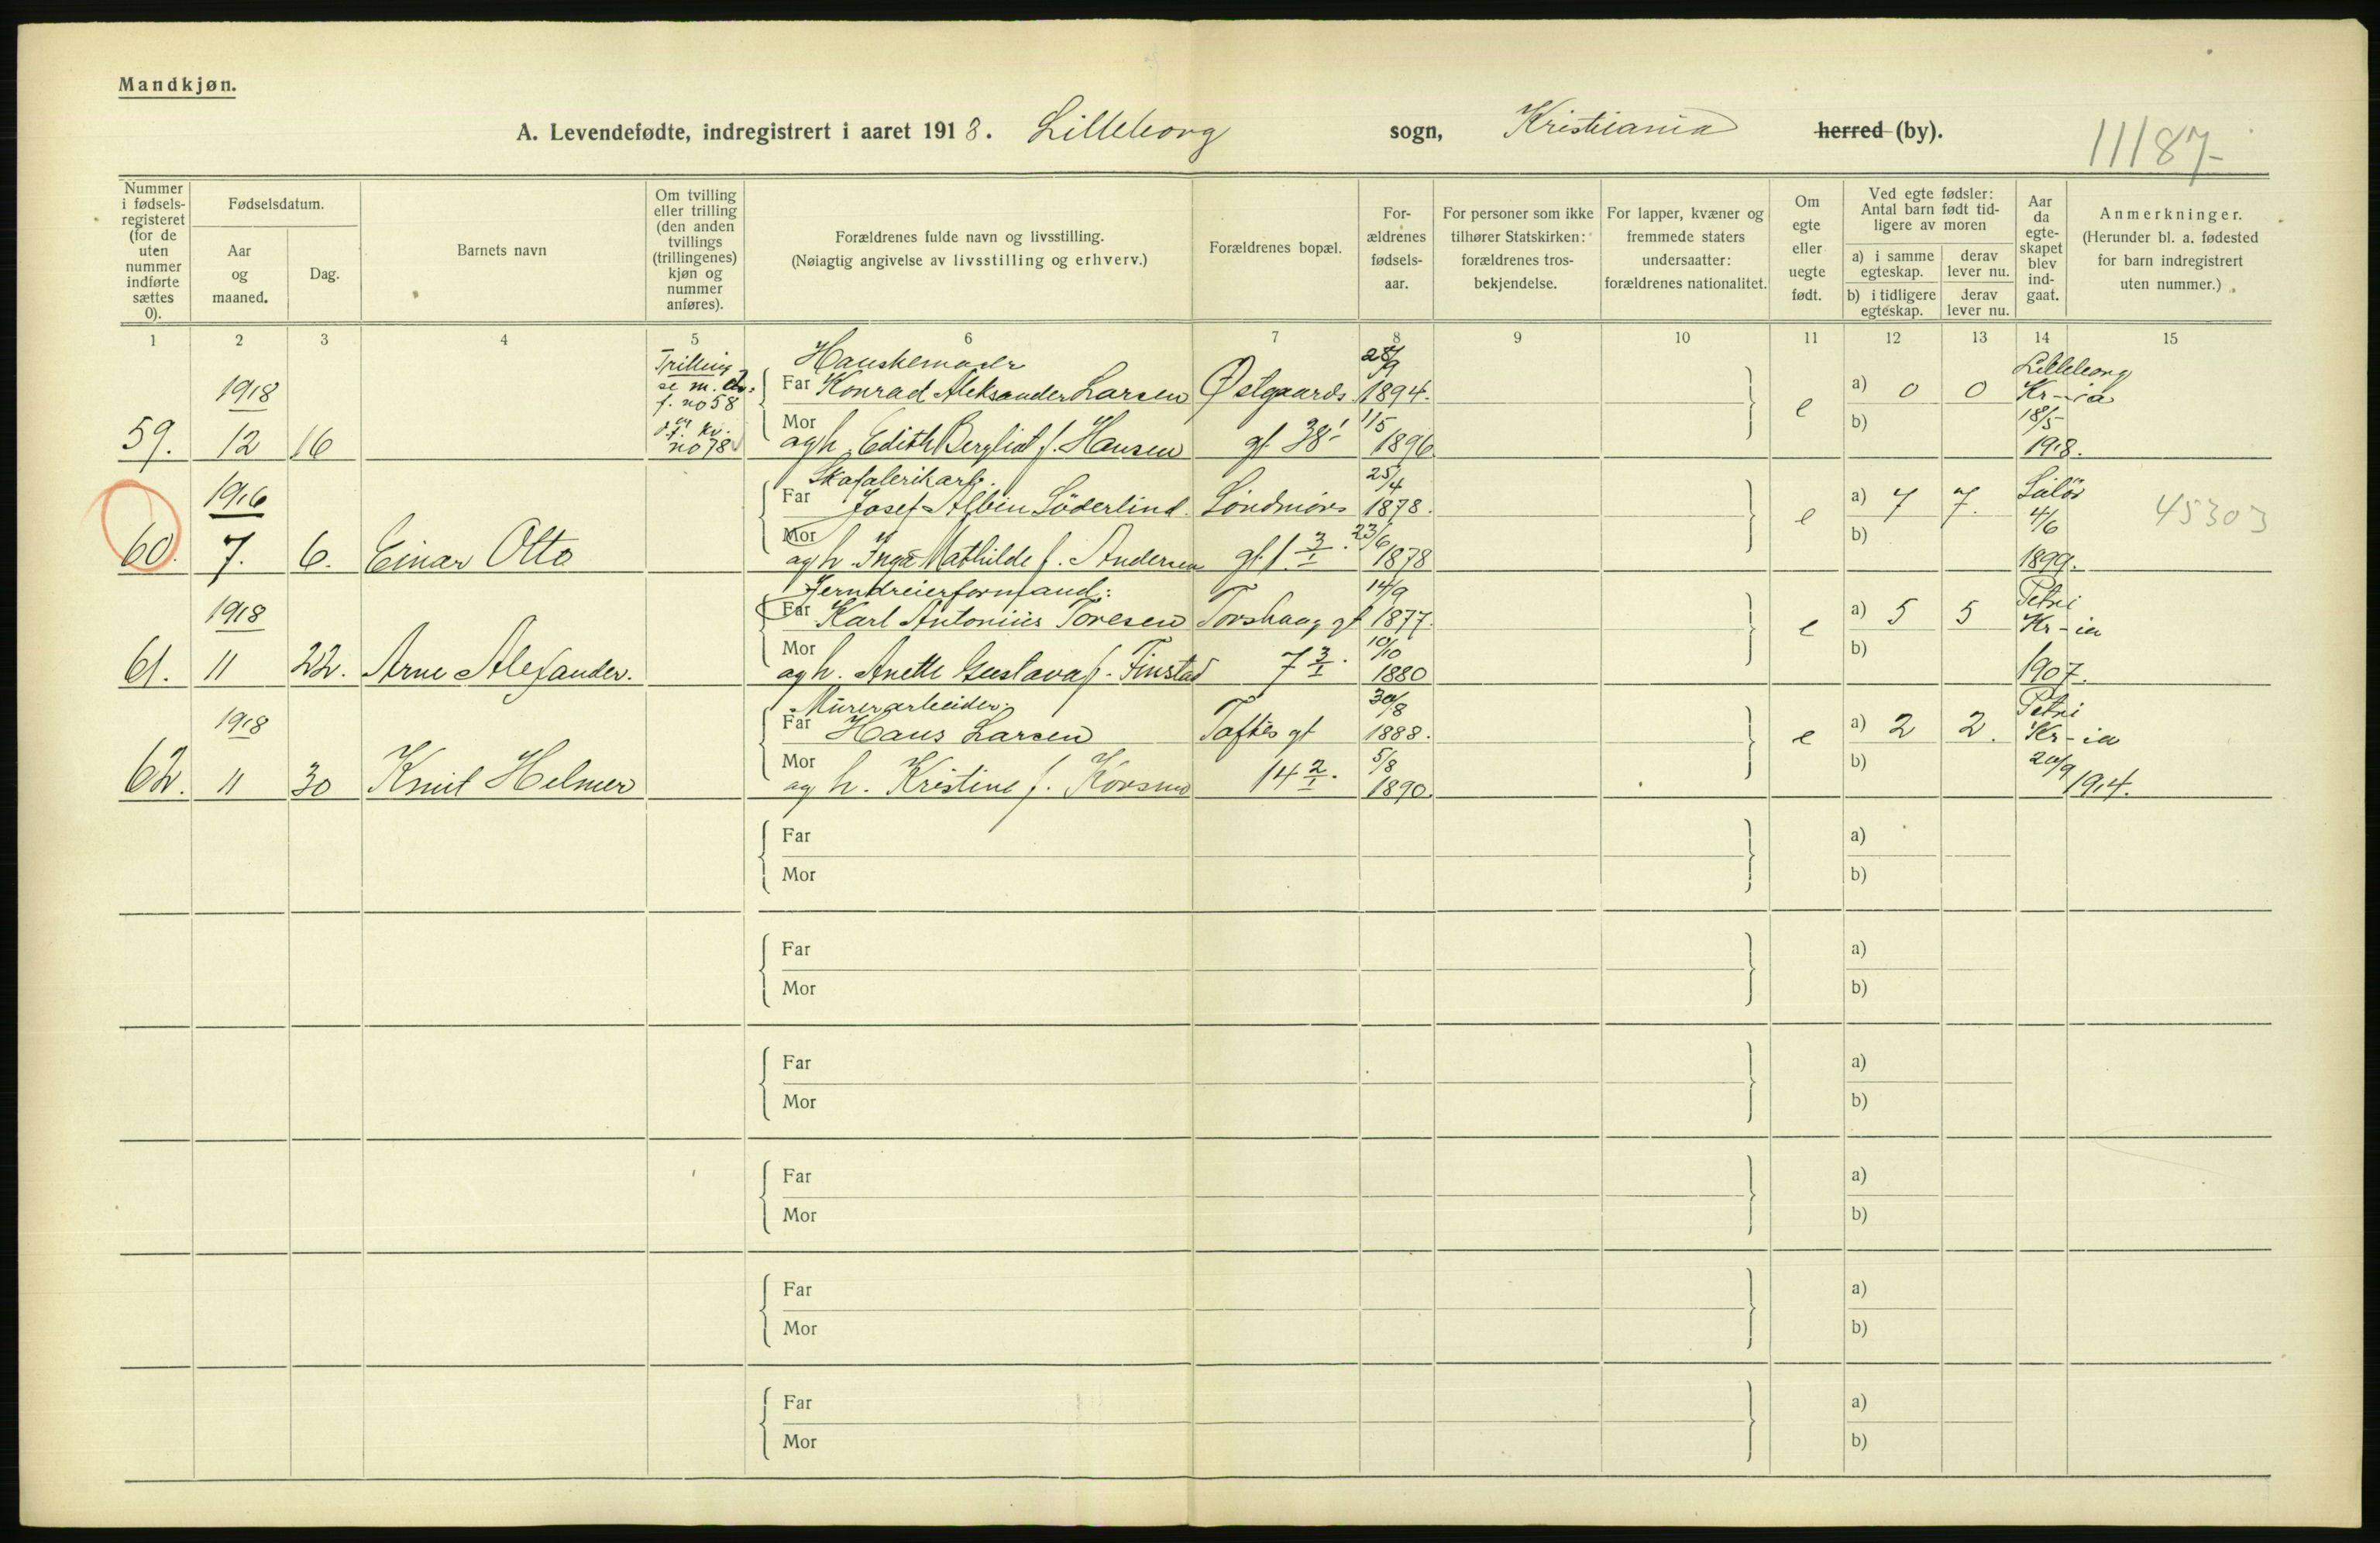 Mandkjøn.
A. Levendefødte, indregistrert i aaret 1918. Lilleborg sogn, Kristiania herred (by).
11187-
Nummer i fødsels-registeret (for de uten nummer indførte sættes 0).
Fødselsdatum.
Aar og maaned.
Dag.
Barnets navn
Om tvilling eller trilling (den anden tvillings (trillingenes) kjøn og nummer anføres).
Forældrenes fulde navn og livsstilling.
(Nøiagtig angivelse av livsstilling og erhverv.)
Forældrenes bopæl.
For-ældrenes fødsels-aar.
For personer som ikke tilhører Statskirken: forældrenes tros-bekjendelse.
For lapper, kvæner og fremmede staters undersaatter: forældrenes nationalitet.
Om egte eller uegte født.
Ved egte fødsler: Antal barn født tid-ligere av moren
a) i samme egteskap.
derav lever nu.
b) i tidligere egteskap.
derav lever nu.
Aar da egte-skapet blev ind-gaat.
Anmerkninger.
(Herunder bl. a. fødested for barn indregistrert uten nummer.)
1 2 3 4 5 6 7 8 9 10 11 12 13 14 15
Trilling Hanskemager 28/9 Lilleborg
1918 se m. Far Konrad Aleksander Larsen Østgaards 1894. a) 0 0 Kr-ia
f. no 58 e
og kv. Mor 1/5 b) 18/5
59. 12 16 no 78 og h. Edith Bergliot f. Hansen gt 38 1896 1918.
Skofabrikarb. 25/4
1916 Far Josef Albin Söderlind. Söndmörs 1878. a) 7 7. 4/6 45303
e
Mor 23/6 b)
60. 7. 6. Einar Otto og h. Inga Mathilde f. Andersen gt 1 3/I. 1878 1899.
Jerndreierformand: 14/9 Petri
1918 Far Karl Antonius Toresen Torshaug gt 1877. a) 5 5 Kr-ia
e
Mor 10/10 b)
61. 11 22. Arne Alexander. og h. Anette Gustava f. Finstad 7 3/I. 1880 1907.
Murerarbeider. 30/8 Petri
1918 Far Hans Larsen Toftes gt 1888. a) 2 2. Kr-ia
e
Mor 5/8 b) 20/9
62. 11 30 Knut Helmer og h. Kristine f. Korsmo 14 2/I. 1890. 1914.
Far a)
Mor b)
Far a)
Mor b)
Far a)
Mor b)
Far a)
Mor b)
Far a)
Mor b)
Far a)
Mor b)